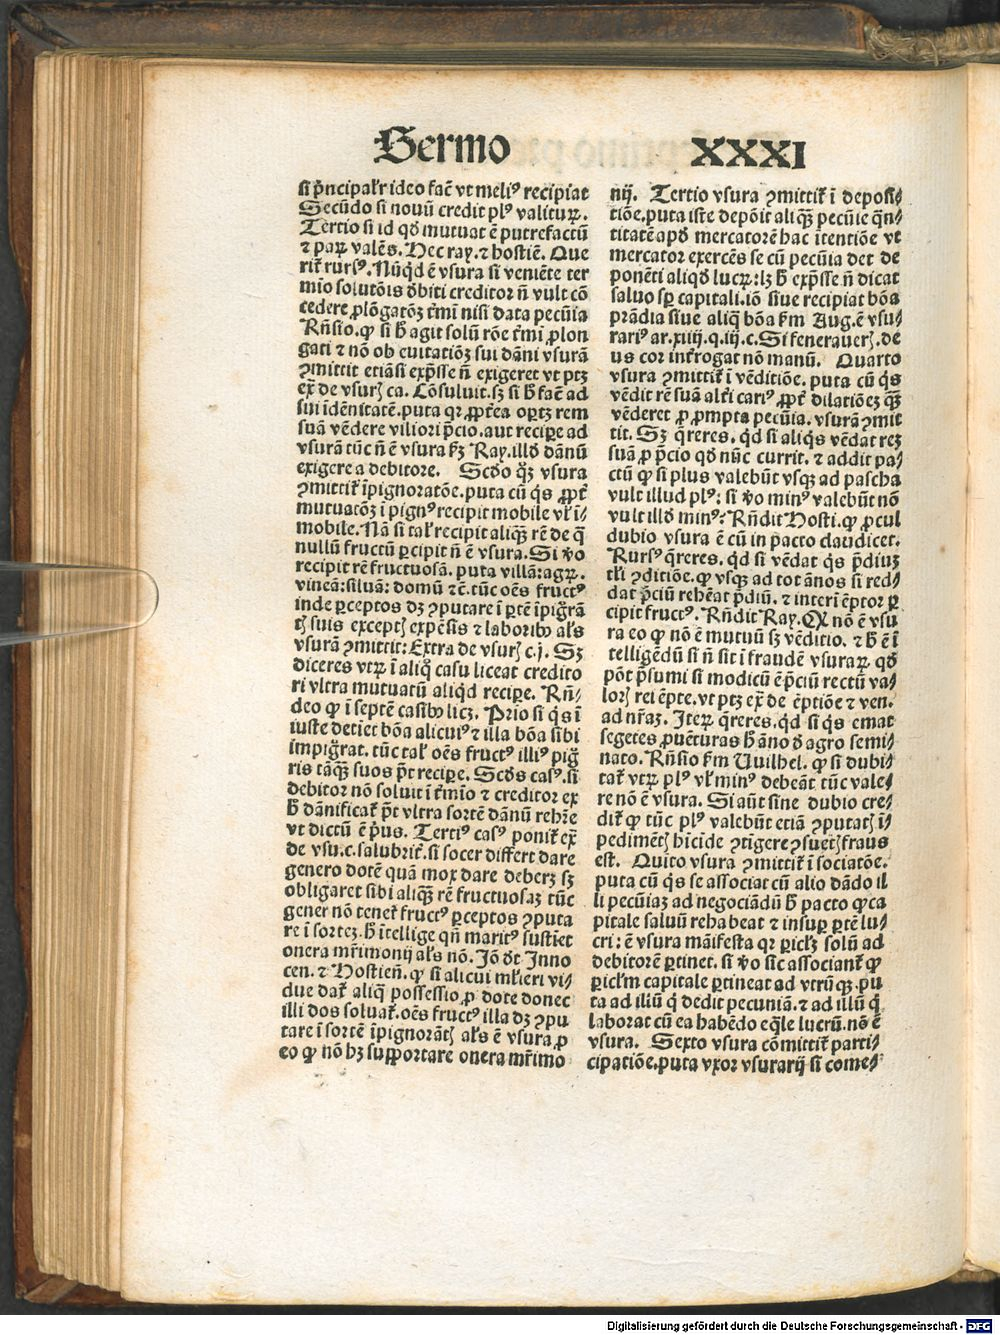 Sermo XXXI
si p̃ncipal'r ideo facẽ vt meliꝰ recipiat
Secũdo si nouũ credit plꝰ valituꝝ.
Tertio si id qd' mutuat ẽ putrefactũ
⁊ paꝝ valẽs. Hec ray. ⁊ hostiẽ. Que
rit̃ rursꝰ. Nũqd ẽ vsura si veniẽte ter
mio solutõis d'biti creditor ñ vult cõ
cedere ꝓlõgatõꝫ t'mi nisi data pecũia
Rñsio. ꝙ si h̃ agit solũ rõe t'mi ꝓlon
gati ⁊ nõ ob euitatiõꝫ sui dãni vsurã
ꝯmittit etiã si exp̃sse ñ exigeret vt ptꝫ
ex̃ de vsurꝭ ca. Cõsuluit. sꝫ si h̃ facẽ ad
sui idẽnitatẽ. puta qꝛ ꝓpt̃ea oꝑtꝫ rem
suã vẽdere viliori p̃cio. aut recipe ad
vsurã tũc ñ ẽ vsura ẜm Ray. illd' dãnũ
exigere a debitore. Scd'o q̃ꝫ vsura
ꝯmittit̃ ĩpignoratõe. puta cũ q̃s ꝓpt̃
mutuatõꝫ ĩ pignꝰ recipit mobile vl' ĩ⸗
mobile. Nã si tal' recipit aliq̃ꝫ rẽ de q̃
nullũ fructũ ꝑcipit ñ ẽ vsura. Si v'o
recipit rẽ fructuosã. puta villã: agꝝ.
vineã: siluã: domũ ⁊c̃. tũc oẽs fructꝰ
inde ꝑceptos dꝫ ꝯputare ĩ ꝑtẽ ĩpig̃rã
tꝭ suis exceptꝭ expẽsis ⁊ laboribꝰ al's
vsurã ꝯmittit: Extra de vsurꝭ c. j. Sꝫ
diceres vtꝝ ĩ aliq̃ casu liceat credito
ri vltra mutuatũ aliqd recipe. Rñ⸗
deo ꝙ ĩ septẽ casibꝰ licꝫ. Prio si q̃s ĩ
iuste detiet bõa alicuiꝰ ⁊ illa bõa sibi
impig̃rat. tũc tal' oẽs fructꝰ illiꝰ pig̃
ris tãq̃ꝫ suos p̃t recipe. Scd's casꝰ. si
debitor nõ soluit ĩ t'mĩo ⁊ creditor ex
h̃ dãnificat̃ p̃t vltra sortẽ dãnũ reh̃re
vt dictũ ẽ p̃us. Tertiꝰ casꝰ ponit̃ ex̃
de vsu. c. salubrit̃. si socer differt dare
genero dotẽ quã mox dare deberꝫ sꝫ
obligaret sibi aliq̃ꝫ rẽ fructuosaꝫ tũc
gener nõ tenet̃ fructꝰ ꝑceptos ꝯputa
re ĩ sorteꝫ. h̃ ĩtellige qñ maritꝰ sustiet
onera mr̃imonij al's nõ. Jõ d't Inno
cen. ⁊ Hostieñ. ꝙ si alicui ml'ieri vi⸗
due dat̃ aliq̃ possessio ꝓ dote donec
illi dos soluat̃. oẽs fructꝰ illa dꝫ ꝯpu
tare ĩ sortẽ ĩpignorãtꝭ al's ẽ vsura ꝓ
eo ꝙ nõ hꝫ supportare onera mr̃imo
nij. Tertio vsura ꝯmittit̃ ĩ deposi⸗
tiõe. puta iste depõit aliq̃ꝫ pecũie q̃n⸗
titatẽ apd' mercatorẽ hac ĩtentiõe vt
mercator exercẽs se cũ pecũia det de
ponẽti aliqd' lucꝝ: lꝫ h̃ exp̃sse ñ dicat
saluo sp̃ capitali. iõ siue recipiat bõa
prãdia siue aliq̃ bõa ẜm Aug. ẽ vsu⸗
rariꝰ ar. xiiij. q. iij. c. Si feneraueꝭ. de
us cor int̃rogat nõ manũ. Quarto
vsura ꝯmittit̃ ĩ vẽditiõe. puta cũ q̃s
vẽdit rẽ suã alt'i cariꝰ ꝓpt̃ dilatiõeꝫ q̃ꝫ
vẽderet ꝓ ꝓmpta pecũia. vsurã ꝯmit
tit. Sꝫ q̃reres. qd si aliq̃s vẽdat reꝫ
suã ꝓ p̃cio qd' nũc currit. ⁊ addit pa⸗
ctũ ꝙ si plus valebũt vsqꝫ ad pascha
vult illud plꝰ: si v'o minꝰ valebũt nõ
vult illd' minꝰ: Rñdit Hosti. ꝙ ꝓcul
dubio vsura ẽ cũ in pacto claudicet.
Rursꝰ q̃reres. qd si vẽdat q̃s p̃diuꝫ
tl'i ꝯditiõe. ꝙ vsqꝫ ad tot ãnos si red⸗
dat p̃ciũ rehẽat p̃diũ. ⁊ interĩ ẽptor ꝑ
cipit fructꝰ. Rñdit Ray. Q nõ ẽ vsu
ra eo ꝙ nõ ẽ mutuũ sꝫ vẽditio. ⁊ h̃ ẽ ĩ
telligẽdũ si ñ sit ĩ fraudẽ vsuraꝝ qd'
põt p̃sumi si modicũ ẽ p̃ciũ rectũ va⸗
lorꝭ rei ẽpte. vt ptꝫ ex̃ de ẽptiõe ⁊ ven.
ad nr̃aꝫ. Iteꝝ q̃reres. qd si q̃s emat
segetes ꝓuẽturas h̃ ãno d' agro semi⸗
nato. Rñsio ẜm Wilhel. ꝙ si dubi⸗
tat̃ vtꝝ plꝰ vl' minꝰ debeãt tũc vale⸗
re nõ ẽ vsura. Si aũt sine dubio cre⸗
dit̃ ꝙ tũc plꝰ valebũt etiã ꝯputatꝭ ĩ⸗
pedimẽtꝭ hĩcĩde ꝯtĩgere ꝯsuetꝭ fraus
est. Quĩto vsura ꝯmittit̃ ĩ sociatõe.
puta cũ q̃s se associat cũ alio dãdo il
li pecũiaꝫ ad negociãdũ h̃ pacto ꝙ ca
pitale saluũ rehabeat ⁊ insuꝑ ꝑtẽ lu⸗
cri: ẽ vsura mãifesta qꝛ ꝑicl'ꝫ solũ ad
debitorẽ ꝑtinet. si v'o sic associant̃ ꝙ
ꝑicl'm capitale ꝑtineat ad vtrũqꝫ. pu
ta ad illũ q̃ dedit pecuniã. ⁊ ad illũ q̃
laborat cũ ea habẽdo eq̃le lucrũ. nõ ẽ
vsura. Sexto vsura cõmittit̃ parti⸗
cipatiõe. puta vxor vsurarij si come⸗
Digitalisierung gefördert durch die Deutsche Forschungsgemeinschaft - DFG